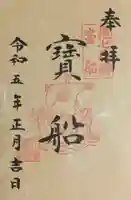 奉拝
寶船
令和五年正月吉日